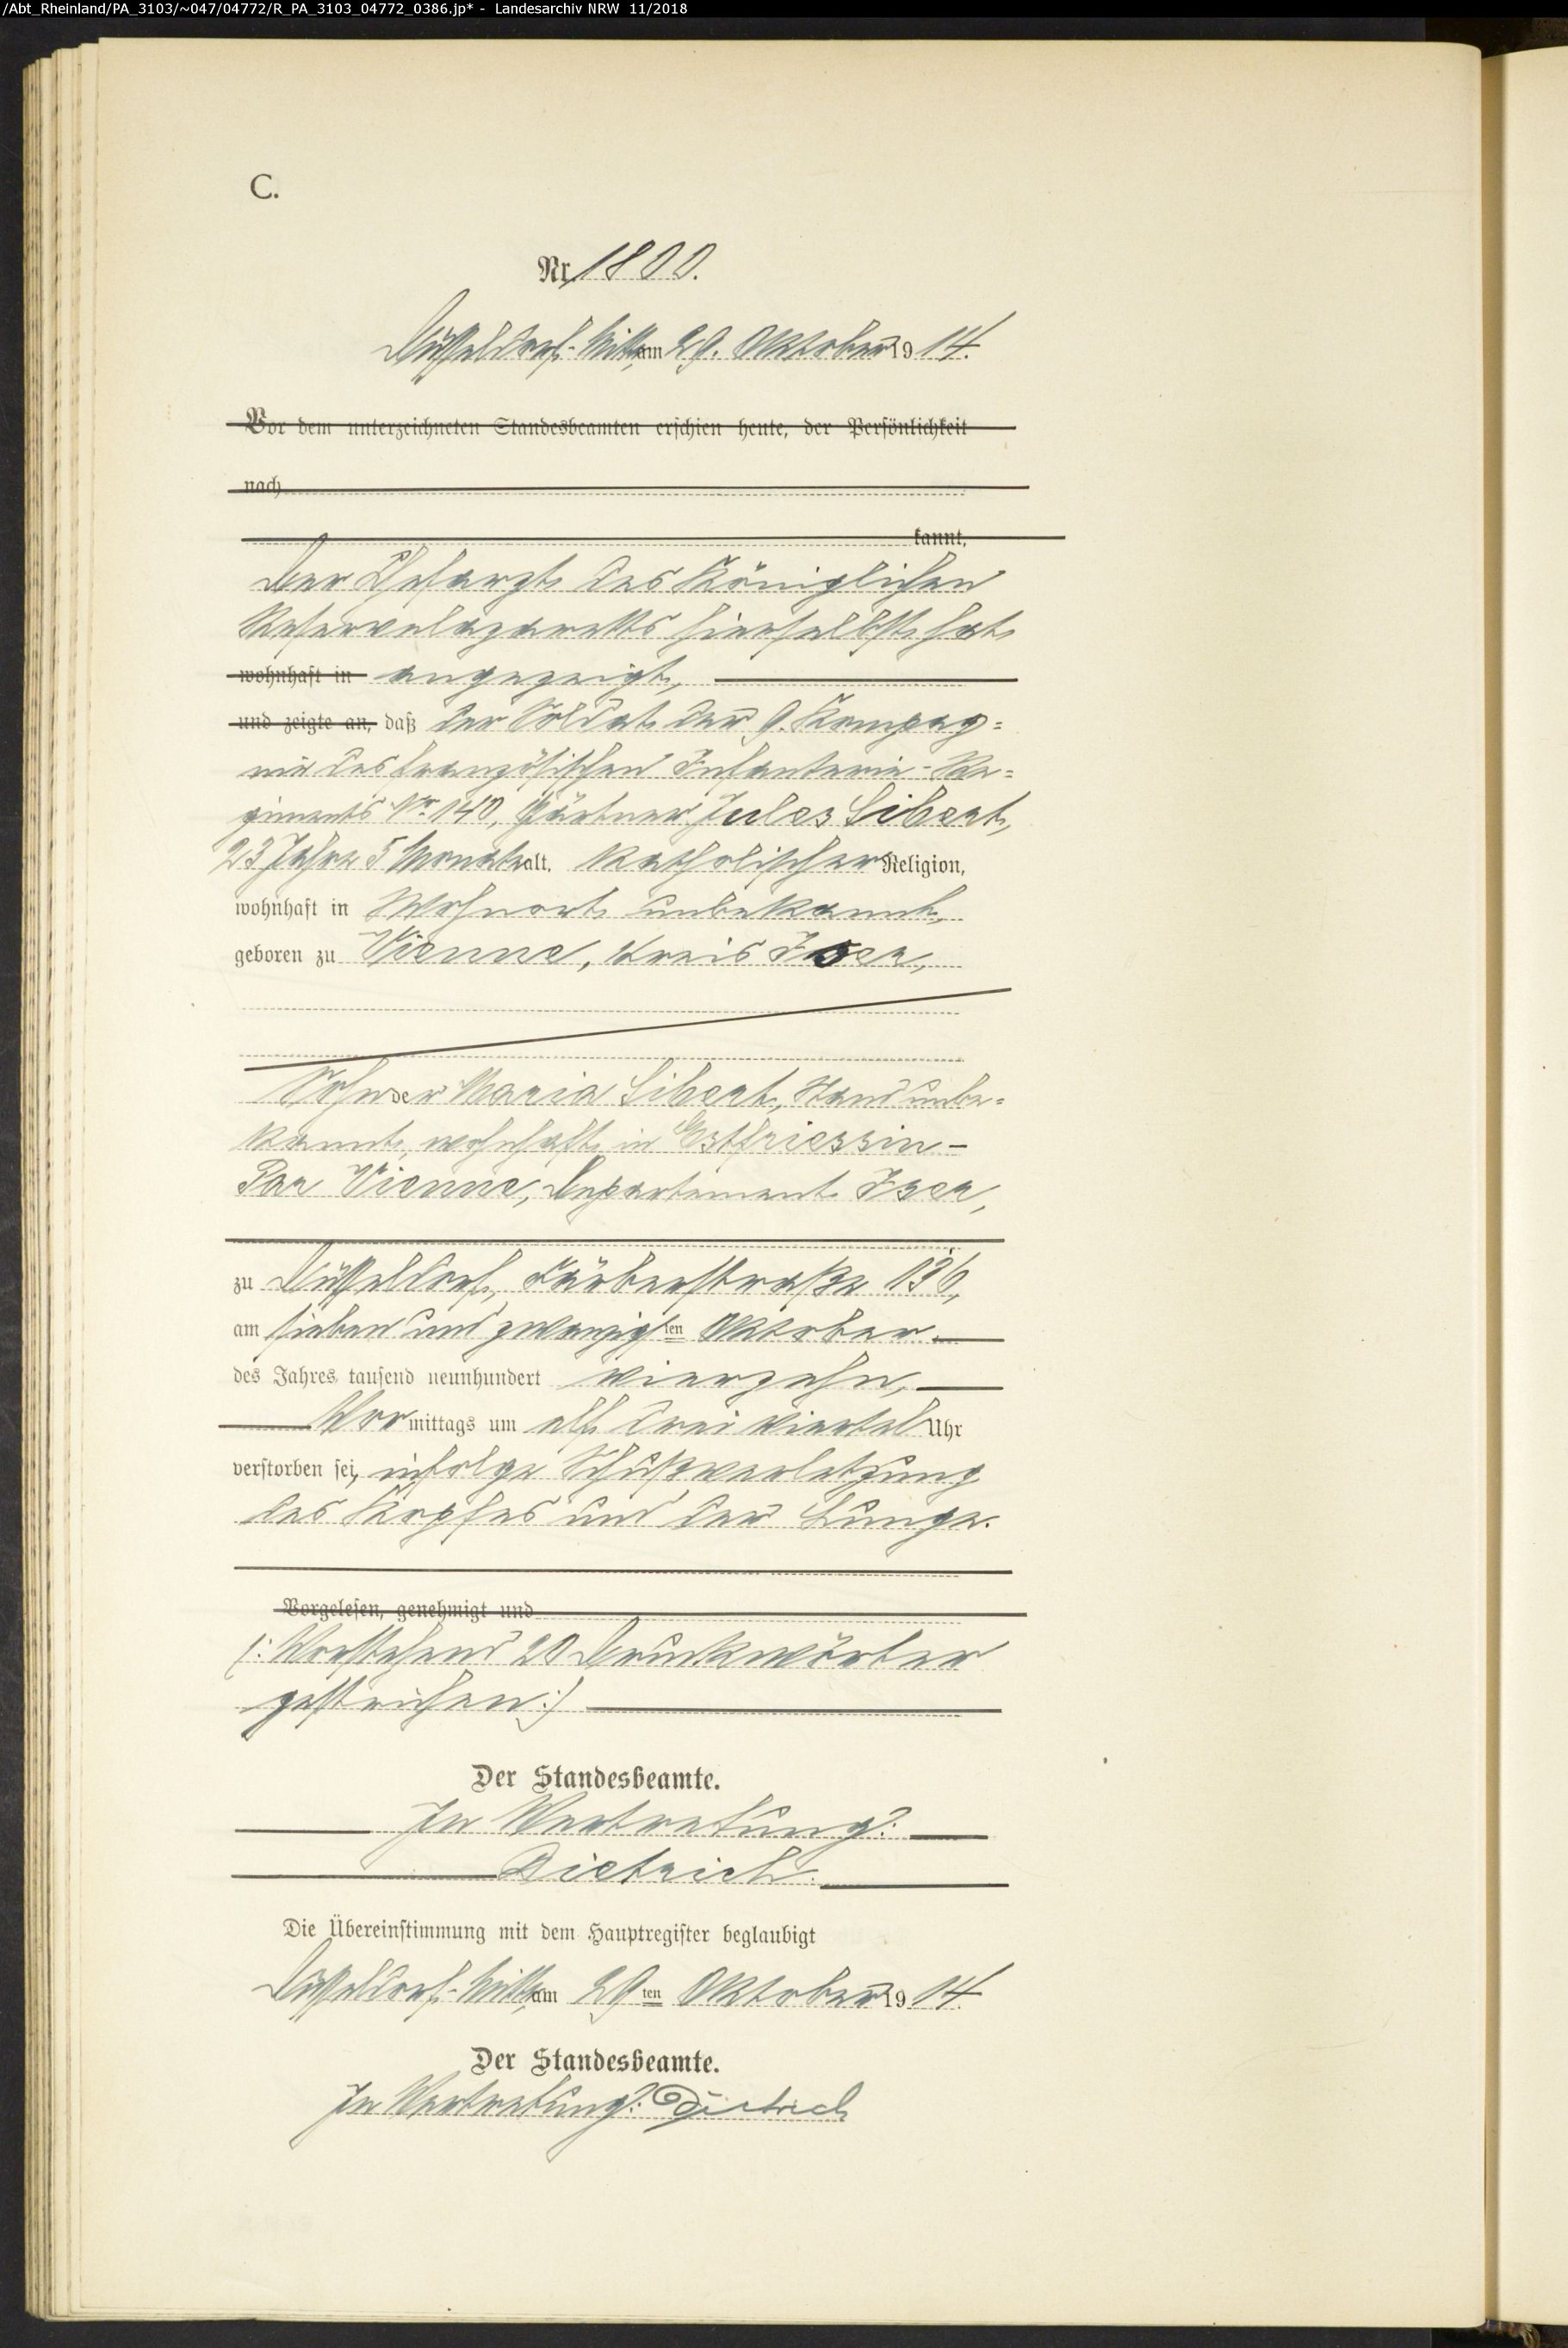 /Abt_Rheinland/PA_3103/~047/04772/R_PA_3103_04772_0386.jp* - Landesarchiv NRW 11/2018
C.
Nr. 1800.
Düsseldorf-Mitte, am 29. Oktober 1914.
Vor dem unterzeichneten Standesbeamten erschien heute, der Persönlichkeit
nach
kannt,
Der Chefarzt des Königlichen
Reservelazaretts hierselbst hat
wohnhaft in angezeigt,
und zeigte an, daß der Soldat der 9. Kompag=
nie des französischen Infanterie-Re=
giments Nr. 140, Gärtner Jules Libert,
23 Jahre 5 Monate alt, katholischer Religion,
wohnhaft in Wohnort unbekannt,
geboren zu Vienne, Kreis Iser,
Sohn der Maria Libert, Stand unbe=
kannt, wohnhaft in Estfriessin-
Par Vienne, Departement Iser,
zu Düsseldorf, Färberstraße 136,
am sieben und zwanzigsten Oktober
des Jahres tausend neunhundert vierzehn,
Vormittags um elf drei viertel Uhr
verstorben sei, infolge Schußverletzung
des Kopfes und der Lunge.
Vorgelesen, genehmigt und
(: Vorstehend 20 Druckwörter
gestrichen :)
Der Standesbeamte.
In Vertretung:
Dietrich.
Die Übereinstimmung mit dem Hauptregister beglaubigt
Düsseldorf-Mitte, am 29ten Oktober 1914.
Der Standesbeamte.
In Vertretung: Dietrich